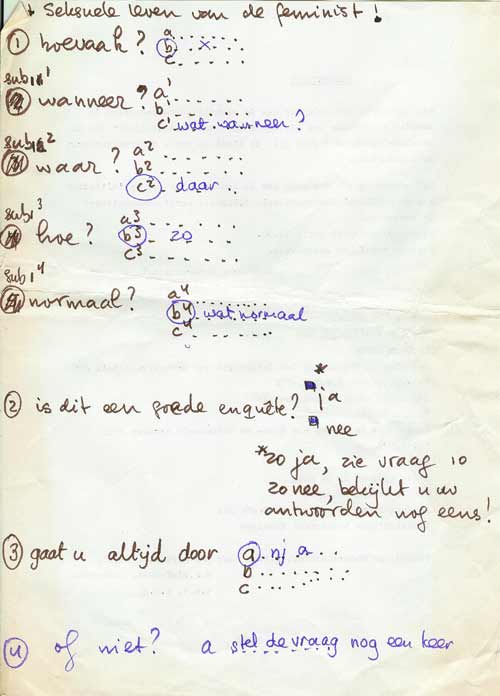 ↓ Seksuele leven van de feminist!
① hoevaak? a .......
b ... x ...
c .......
sub1 1
wanneer? a1 .......
b1 .......
c1 wat wanneer?
sub1 2
waar? a2 .......
b2 .......
c2 daar
sub1 3
hoe? a3 .......
b3 zo
c3 .......
sub1 4
normaal? a4 .......
b4 wat normaal
c4 .......
*
② is dit een goede enquête? ja
nee
*zo ja, zie vraag 10
zo nee, bekijkt u uw
antwoorden nog eens!
③ gaat u altijd door a . nj a . . .
b .......
c .......
④ of niet? a stel de vraag nog een keer